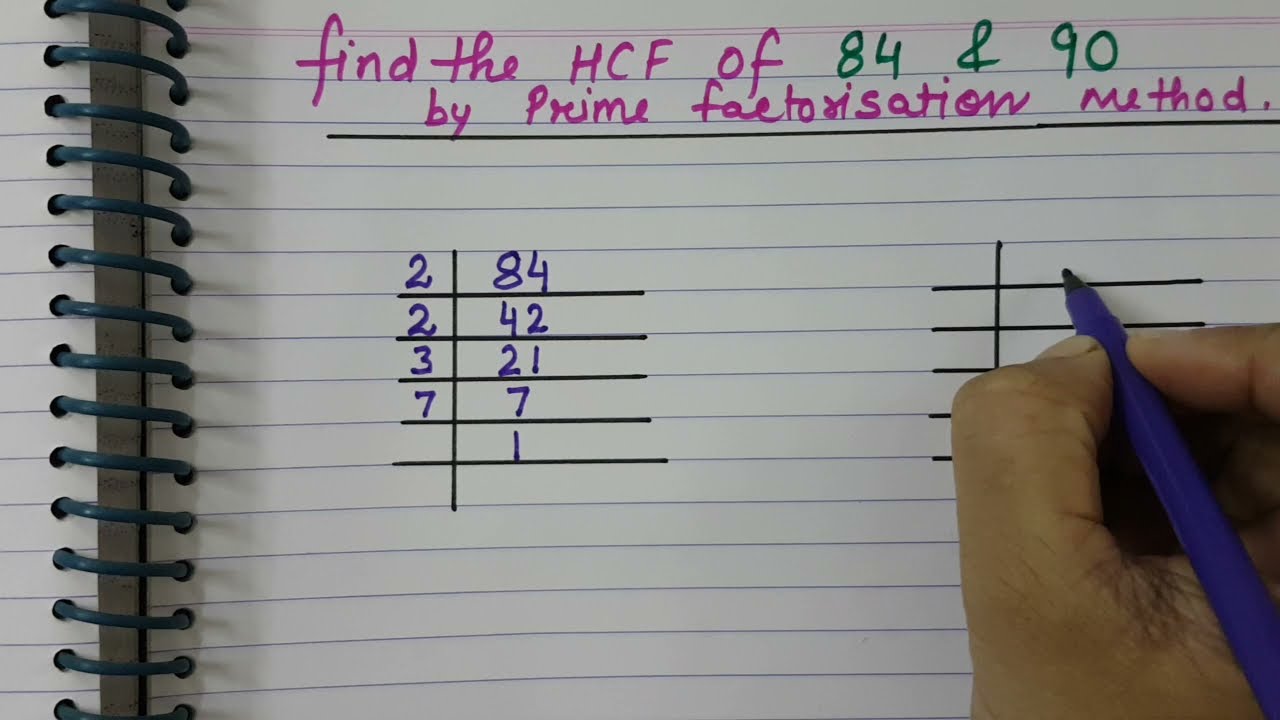 find the HCF of 84 & 90
by Prime factorisation method.
2 84
2 42
3 21
7 7
1